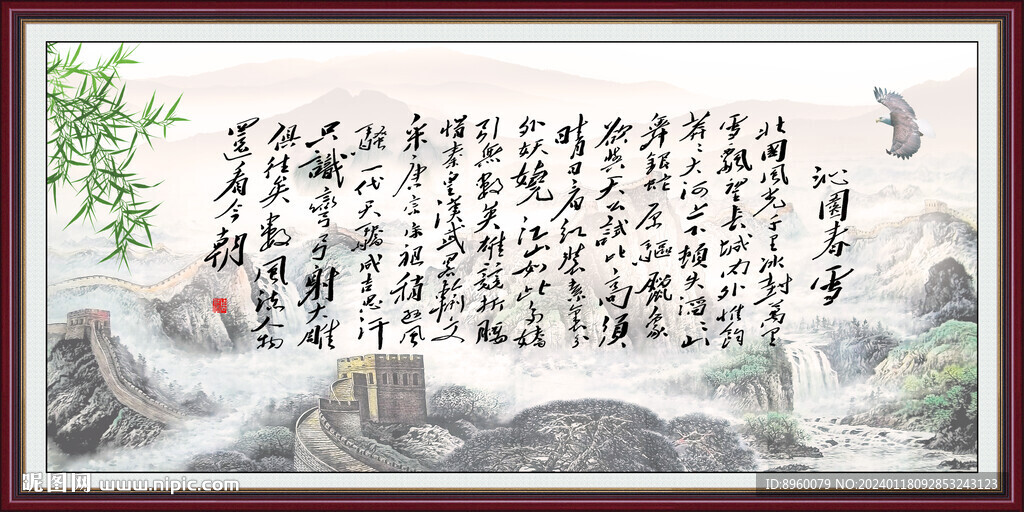 沁園春雪
北國風光千里冰封萬里
雪飄望長城內外惟餘
莽々大河上下頓失滔々山
舞銀蛇原驅臘象
欲與天公試比高須
晴日看紅裝素裹分
外妖嬈江山如此多嬌
引無數英雄競折腰
惜秦皇漢武略輸文
采唐宗宋祖稍遜風
騷一代天驕成吉思汗
只識彎弓射大雕
俱往矣數風流人物
還看今朝
昵图网 www.nipic.com
ID:8960079 NO:20240118092853243123